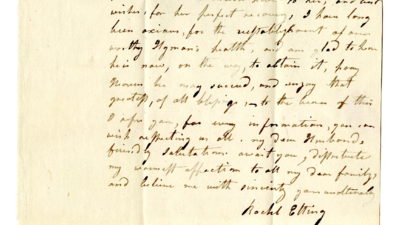 wishes, for her perfect recovery, I have long
been anxious, for the reestablishment of our
worthy Hyman's health, and am glad to hear
he is now, on the way, to obtain it, pray
Heaven he may succeed, and enjoy that
greatest, of all blessings, to the of this
I you, for every information, you can
wish respecting us all. my dear Husbands,
friendly salutations await you, distribute
my warmest affection to all my dear family,
and believe me with sincerity yours
Rachel Etting